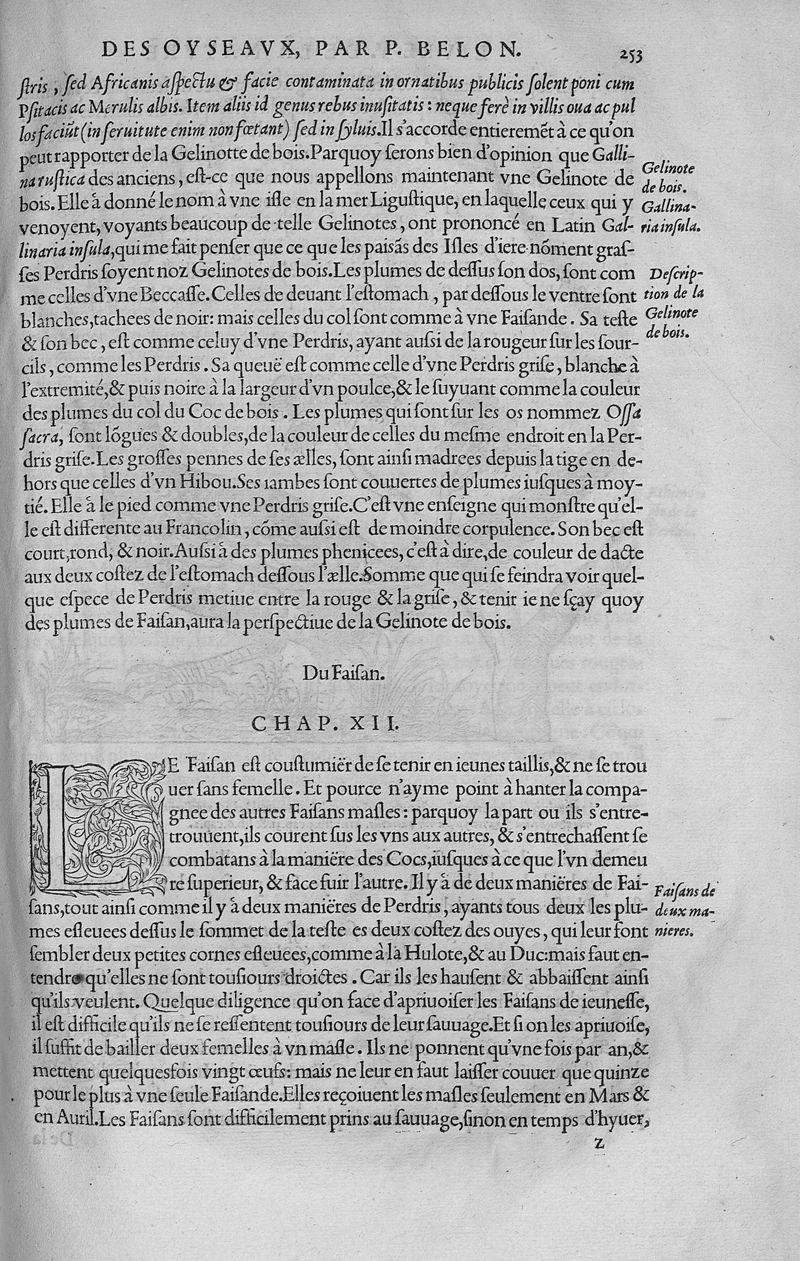 DES OVSEAVX, PAR P. BELON. 253
ſtris, ſed Africanis aſpectu & facie contaminata in ornatibus publicis ſolent poni cum
Pſitacis ac Merulis albis. Item aliis id genus rebus inuſitatis : neque ferè in villis oua ac pul
los faciūt (in ſeruitute enim non fœtant) ſed in ſyluis. Il s'accorde entieremēt à ce qu'on
peut rapporter de la Gelinotte de bois. Parquoy ſerons bien d'opinion que Galli-
na ruſtica des anciens, eſt-ce que nous appellons maintenant vne Gelinote de
bois. Elle á donné le nom à vne iſle en la mer Liguſtique, en laquelle ceux qui y
venoyent, voyants beaucoup de telle Gelinotes, ont prononcé en Latin Gal-
linaria inſula, qui me fait penſer que ce que les paisās des Iſles d'iere nōment graſ-
ſes Perdris ſoyent noz Gelinotes de bois. Les plumes de deſſus ſon dos, ſont com
me celles d'vne Beccaſſe. Celles de deuant l'eſtomach, par deſſous le ventre ſont
blanches, tachees de noir: mais celles du col ſont comme à vne Faiſande. Sa teſte
& ſon bec, eſt comme celuy d'vne Perdris, ayant auſsi de la rougeur ſur les ſour-
cils, comme les Perdris. Sa queuë eſt comme celle d'vne Perdris griſe, blanche à
l'extremité, & puis noire à la largeur d'vn poulce, & le ſuyuant comme la couleur
des plumes du col du Coc de bois. Les plumes qui ſont ſur les os nommez Oſſa
ſacra, ſont lōgues & doubles, de la couleur de celles du meſme endroit en la Per-
dris griſe. Les groſſes pennes de ſes ælles, ſont ainſi madrees depuis la tige en de-
hors que celles d'vn Hibou. Ses iambes ſont couuertes de plumes iuſques à moy-
tié. Elle á le pied comme vne Perdris griſe. C'eſt vne enſeigne qui monſtre qu'el-
le eſt differente au Francolin, cōme auſsi eſt de moindre corpulence. Son bec eſt
court, rond, & noir. Auſsi á des plumes phenicees, c'eſt à dire, de couleur de dacte
aux deux coſtez de l'eſtomach deſſous l'ælle. Somme que qui ſe feindra voir quel-
que eſpece de Perdris metiue entre la rouge & la griſe, & tenir ie ne ſçay quoy
des plumes de Faiſan, aura la perſpectiue de la Gelinote de bois.
Gelinote
de bois.
Gallina-
ria inſula.
Deſcrip-
tion de la
Gelinote
de bois.
Du Faiſan.
CHAP. XII.
LE Faiſan eſt couſtumiër de ſe tenir en ieunes taillis, & ne ſe trou
uer ſans femelle. Et pource n'ayme point à hanter la compa-
gnee des autres Faiſans maſles : parquoy la part ou ils s'entre-
trouuent, ils courent ſus les vns aux autres, & s'entrechaſſent ſe
combatans à la maniëre des Cocs, iuſques à ce que l'vn demeu
re ſuperieur, & face fuir l'autre. Il y á de deux maniëres de Fai-
ſans, tout ainſi comme il y á deux maniëres de Perdris, ayants tous deux les plu-
mes eſleuees deſſus le ſommet de la teſte es deux coſtez des ouyes, qui leur font
ſembler deux petites cornes eſleuees, comme à la Hulote, & au Duc: mais faut en-
tendre qu'elles ne ſont touſiours droictes. Car ils les hauſent & abbaiſſent ainſi
qu'ils veulent. Quelque diligence qu'on face d'apriuoiſer les Faiſans de ieuneſſe,
il eſt difficile qu'ils ne ſe reſſentent touſiours de leur ſauuage. Et ſi on les apriuoiſe,
il ſuffit de bailler deux femelles à vn maſle. Ils ne ponnent qu'vne fois par an, &
mettent quelquesfois vingt œufs: mais ne leur en faut laiſſer couuer que quinze
pour le plus à vne ſeule Faiſande. Elles reçoiuent les maſles ſeulement en Mars &
en Auril. Les Faiſans ſont difficilement prins au ſauuage, ſinon en temps d'hyuer,
Faiſans de
deux ma-
nieres.
Z